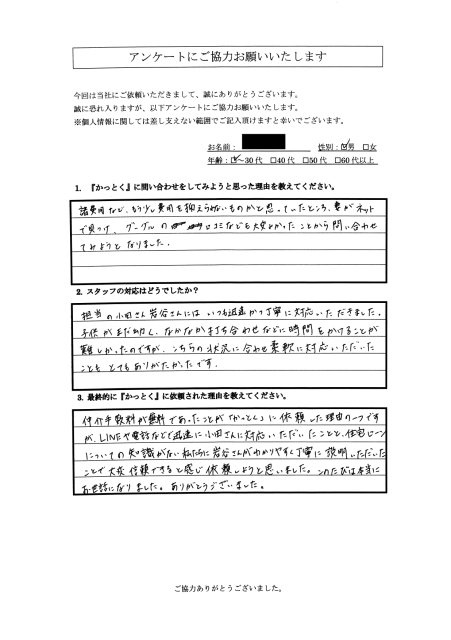 アンケートにご協力お願いいたします
今回は当社にご依頼いただきまして、誠にありがとうございます。
誠に恐れ入りますが、以下アンケートにご協力お願いいたします。
※個人情報に関しては差し支えない範囲でご記入頂けますと幸いでございます。
お名前： 性別：☑男 □女
年齢：☑～30代 □40代 □50代 □60代以上
1. 『かっとく』に問い合わせをしてみようと思った理由を教えてください。
諸費用など、もう少し費用を抑えられないものかと思っていたところ、妻がネット
で見つけ、グーグルの口コミなども大変よかったことから問い合わせ
てみようとなりました。
2. スタッフの対応はどうでしたか？
担当の小田さん岩谷さんにはいつも迅速かつ丁寧に対応いただきました。
子供がまだ幼く、なかなか打ち合わせなどに時間をかけることが
難しかったのですが、こちらの状況に合わせ柔軟に対応いただいた
こともとてもありがたかったです。
3. 最終的に『かっとく』に依頼された理由を教えてください。
仲介手数料が無料であったことが「かっとく」に依頼した理由の一つです
が、LINEや電話などで迅速に小田さんに対応いただいたことと、住宅ローン
についての知識がない私たちに岩谷さんがわかりやすく丁寧に説明いただいた
ことで大変信頼できると感じ依頼しようと思いました。このたびは本当に
お世話になりました。ありがとうございました。
ご協力ありがとうございました。